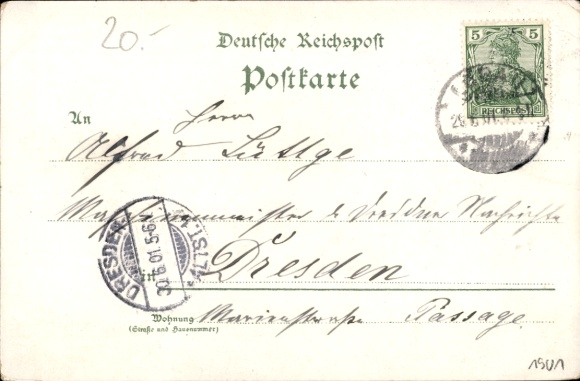 20.-
Deutsche Reichspost
Postkarte
5 5
REICHSPOST
An Herrn
Alfred Lüttge
Maschinenmeister d. Dresdner Nachrichten
in Dresden
DRESDEN
30.6.01. 5-6
ALTST. 1
Wohnung Marienstraße Passage
(Straße und Hausnummer)
1901